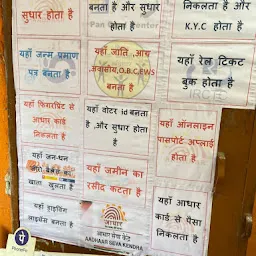 सुधार होता है
बनता है और सुधार
होता है
निकलता है और
K.Y.C होता है
यहाँ जन्म प्रमाण
पत्र बनता है
यहाँ जाति ,आय
,O.B.C,EWS
बनता है
यहाँ रेल टिकट
बुक होता है
यहाँ फिंगरप्रिंट से
आधार कार्ड
निकलता है
यहाँ वोटर id बनता
है ,और सुधार होता
है
यहाँ ऑनलाइन
पासपोर्ट अप्लाई
होता है
यहाँ जन-धन
खाता खुलता है
यहाँ जमीन का
रसीद कटता है
यहाँ आधार
कार्ड से पैसा
निकलता है
यहाँ ड्राइविंग
लाइसेंस बनता है
आधार
आधार सेवा केंद्र
AADHAAR SEVA KENDRA